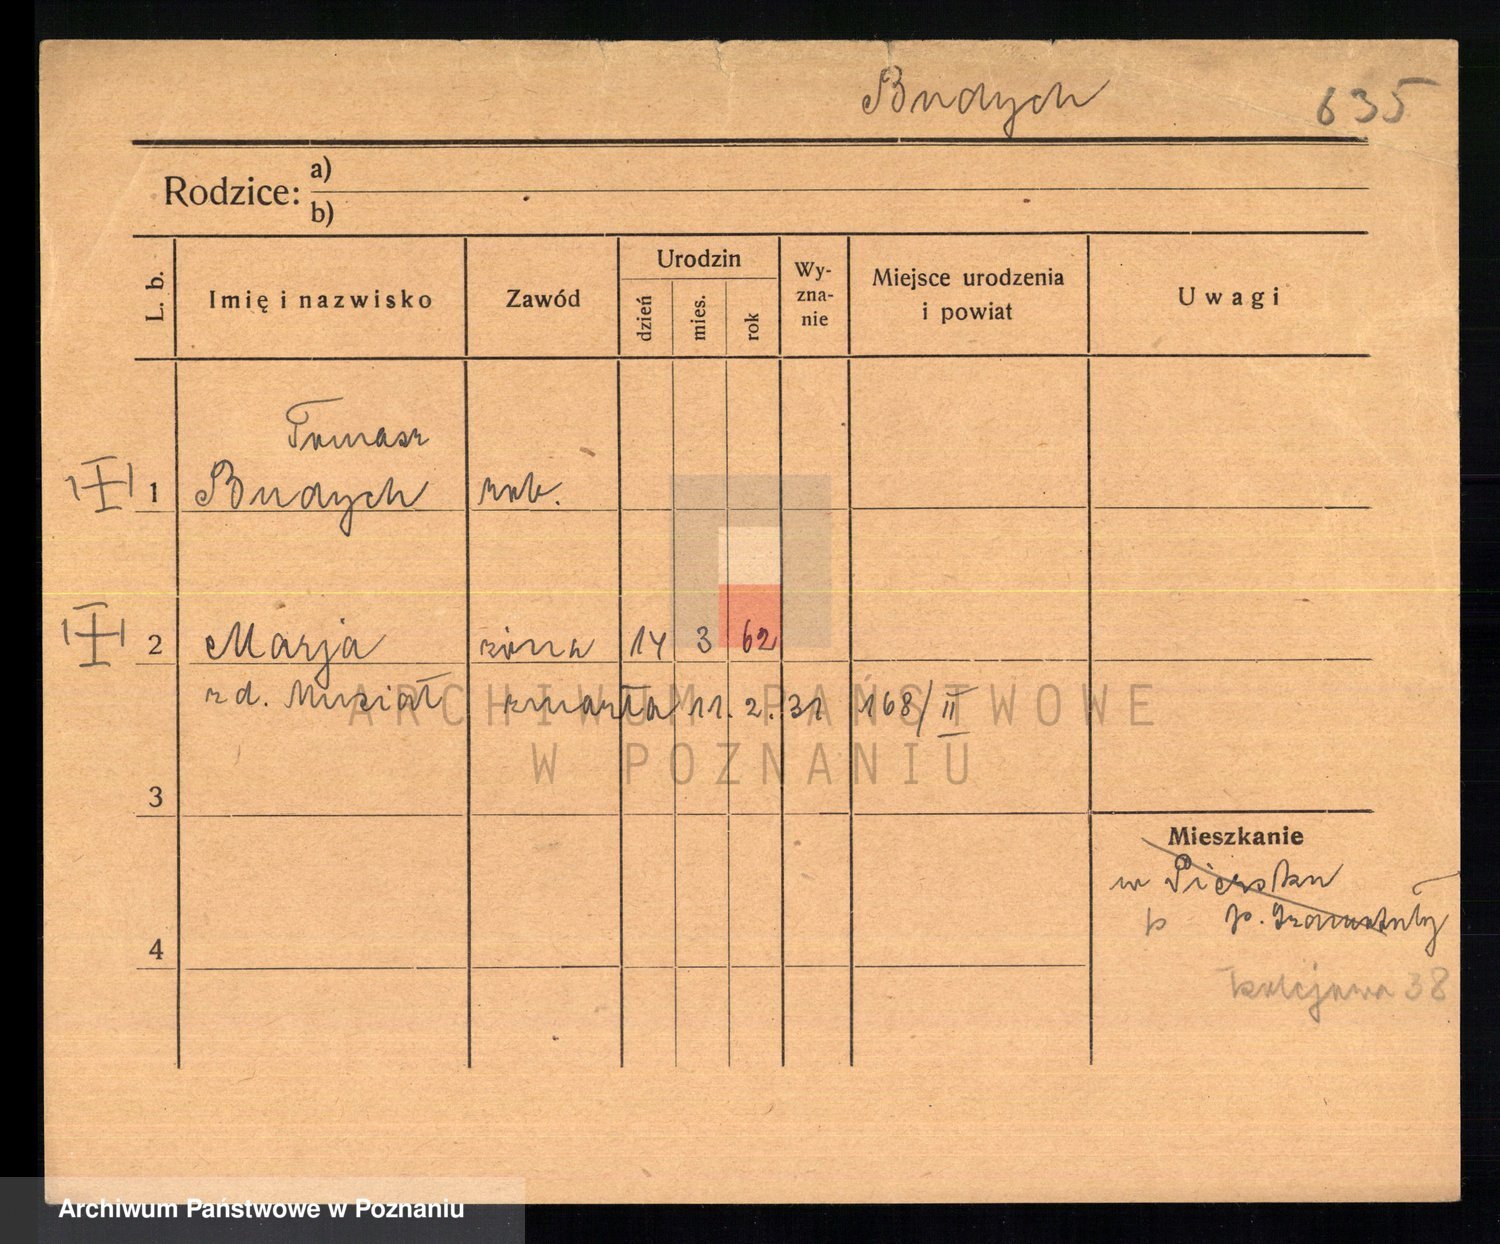 Budych 635
Rodzice: a)
b)
L. b. Imię i nazwisko Zawód Urodzin dzień mies. rok Wy-zna-nie Miejsce urodzenia i powiat Uwagi
Tomasz
1 Budych rob.
2 Marja żona 14 3 62
zd. Musiał zmarła 11. 2. 31 168/II
3
Mieszkanie
w Piersku
p p. Szamotuły
4
Kolejowa 38
ARCHIWUM PAŃSTWOWE
W POZNANIU
Archiwum Państwowe w Poznaniu